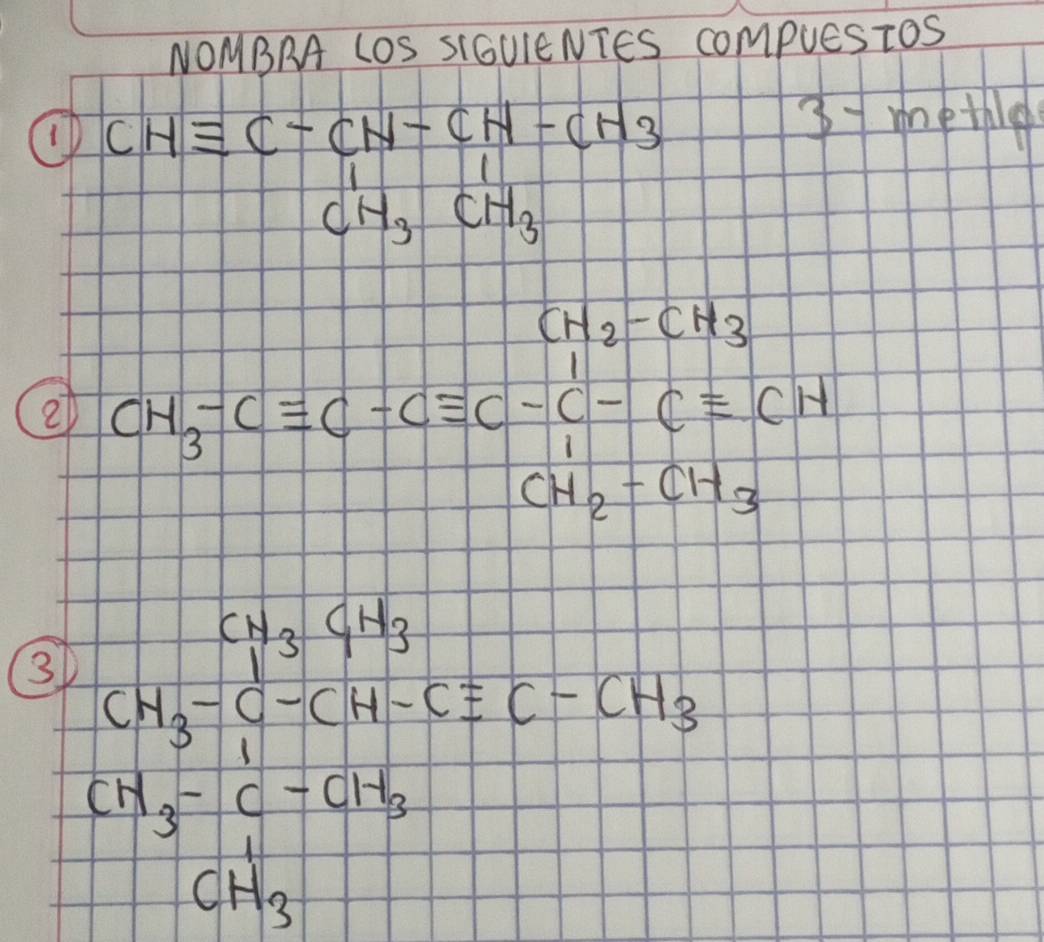 NOMBRA LOS SIGUIENTES COMPUESTOS
① CH≡C-CH-CH-CH3 3-metilp
CH3 CH3
CH2-CH3
② CH3-C≡C-C≡C-C-C≡CH
CH2-CH3
CH3 CH3
③ CH3-C-CH-C≡C-CH3
CH3-C-CH3
CH3